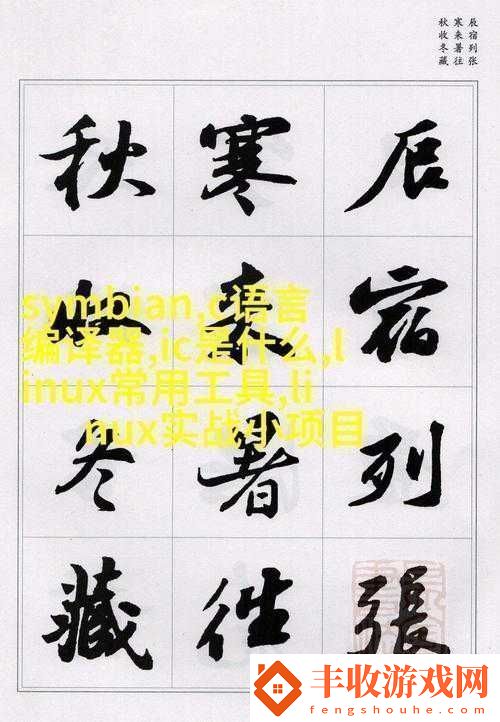 辰宿列张
寒来暑往
秋收冬藏
辰宿列張
寒来暑往
秋收冬藏
symbian,c语言
编译器,ic是什么,l
inux常用工具,li
nux实战小项目
丰收游戏网
fengshouhe.com